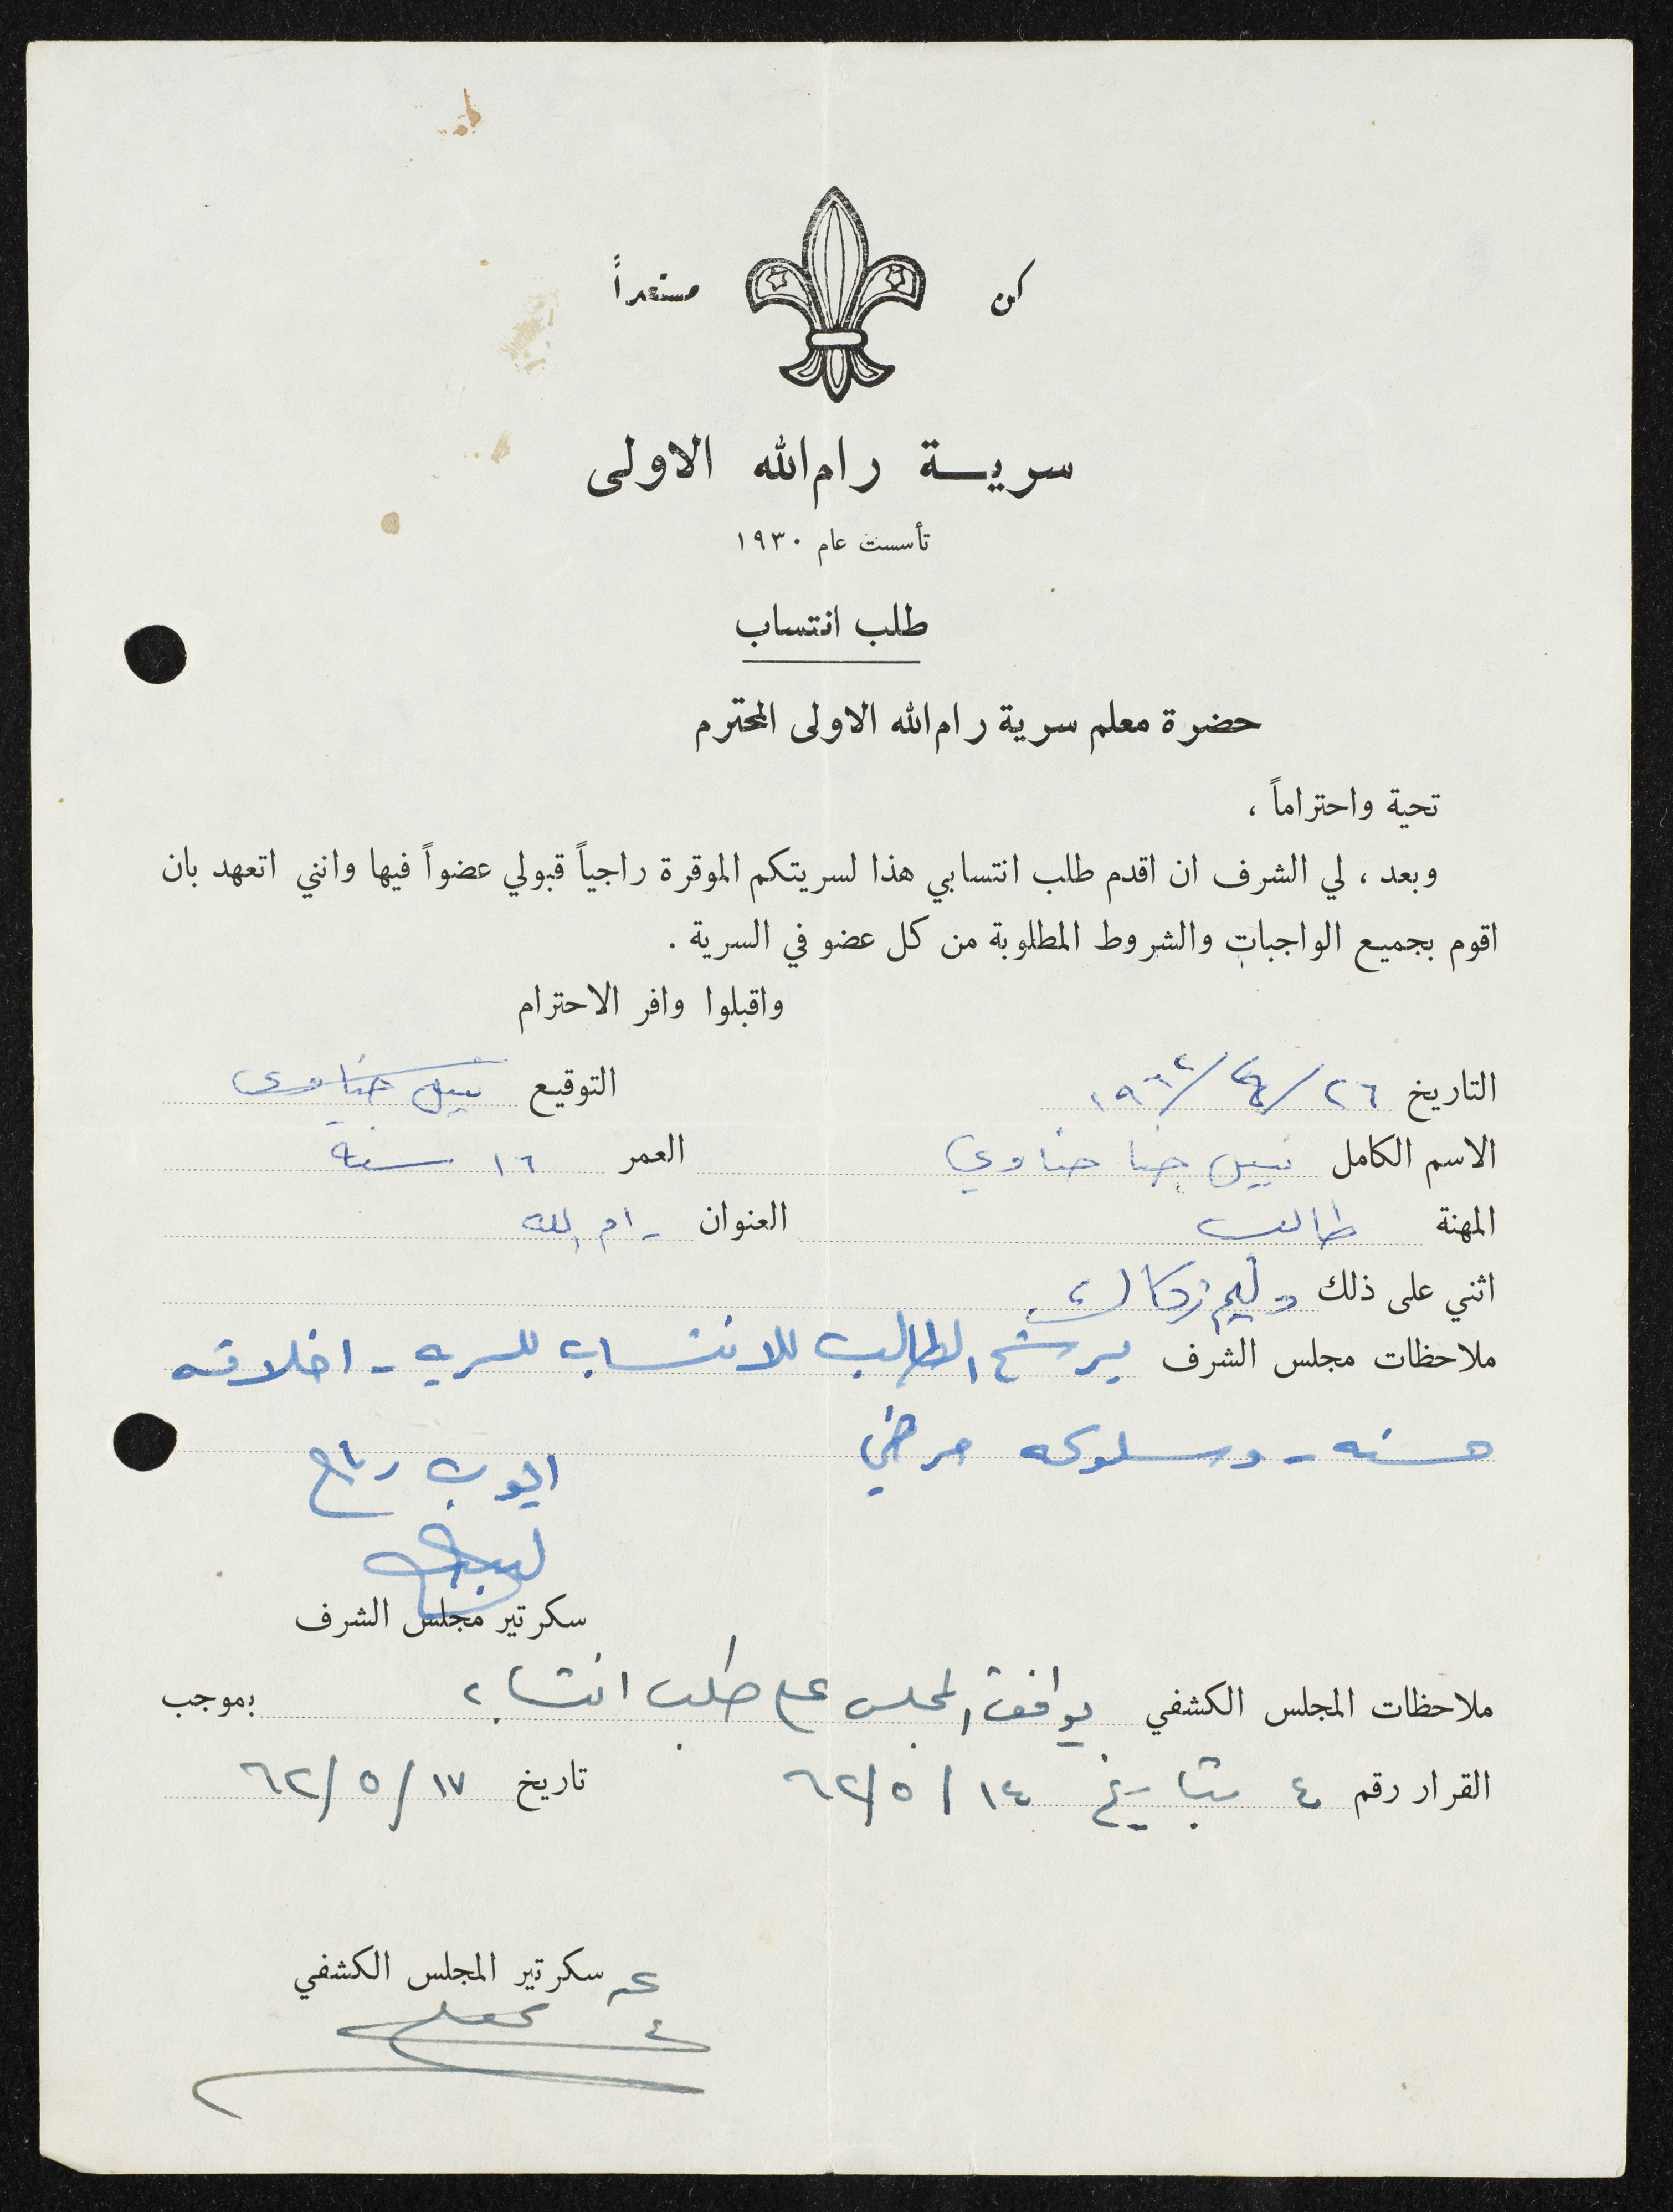 كن مستعداً
سرية رام الله الاولى
تأسست عام ١٩٣٠
طلب انتساب
حضرة معلم سرية رام الله الاولى المحترم
تحية واحتراماً ،
وبعد ، لي الشرف ان اقدم طلب انتسابي هذا لسريتكم الموقرة راجياً قبولي عضواً فيها وانني اتعهد بان
اقوم بجميع الواجبات والشروط المطلوبة من كل عضو في السرية .
واقبلوا وافر الاحترام
التاريخ ٢٦/٤/١٩٦٢ التوقيع نبيل حناوي
الاسم الكامل نبيل حنا حناوي العمر ١٦ سنة
المهنة طالب العنوان رام الله
اثني على ذلك وليم
ملاحظات مجلس الشرف يرشح الطالب للانتساب للسريه - اخلاقه
حسنه - وسلوكه مرضي
ايوب رباح
سكرتير مجلس الشرف
ملاحظات المجلس الكشفي يوافق المجلس على طلب انتسابه بموجب
القرار رقم ٤ بتاريخ ١٤/٥/٦٢ تاريخ ١٧/٥/٦٢
عن سكرتير المجلس الكشفي